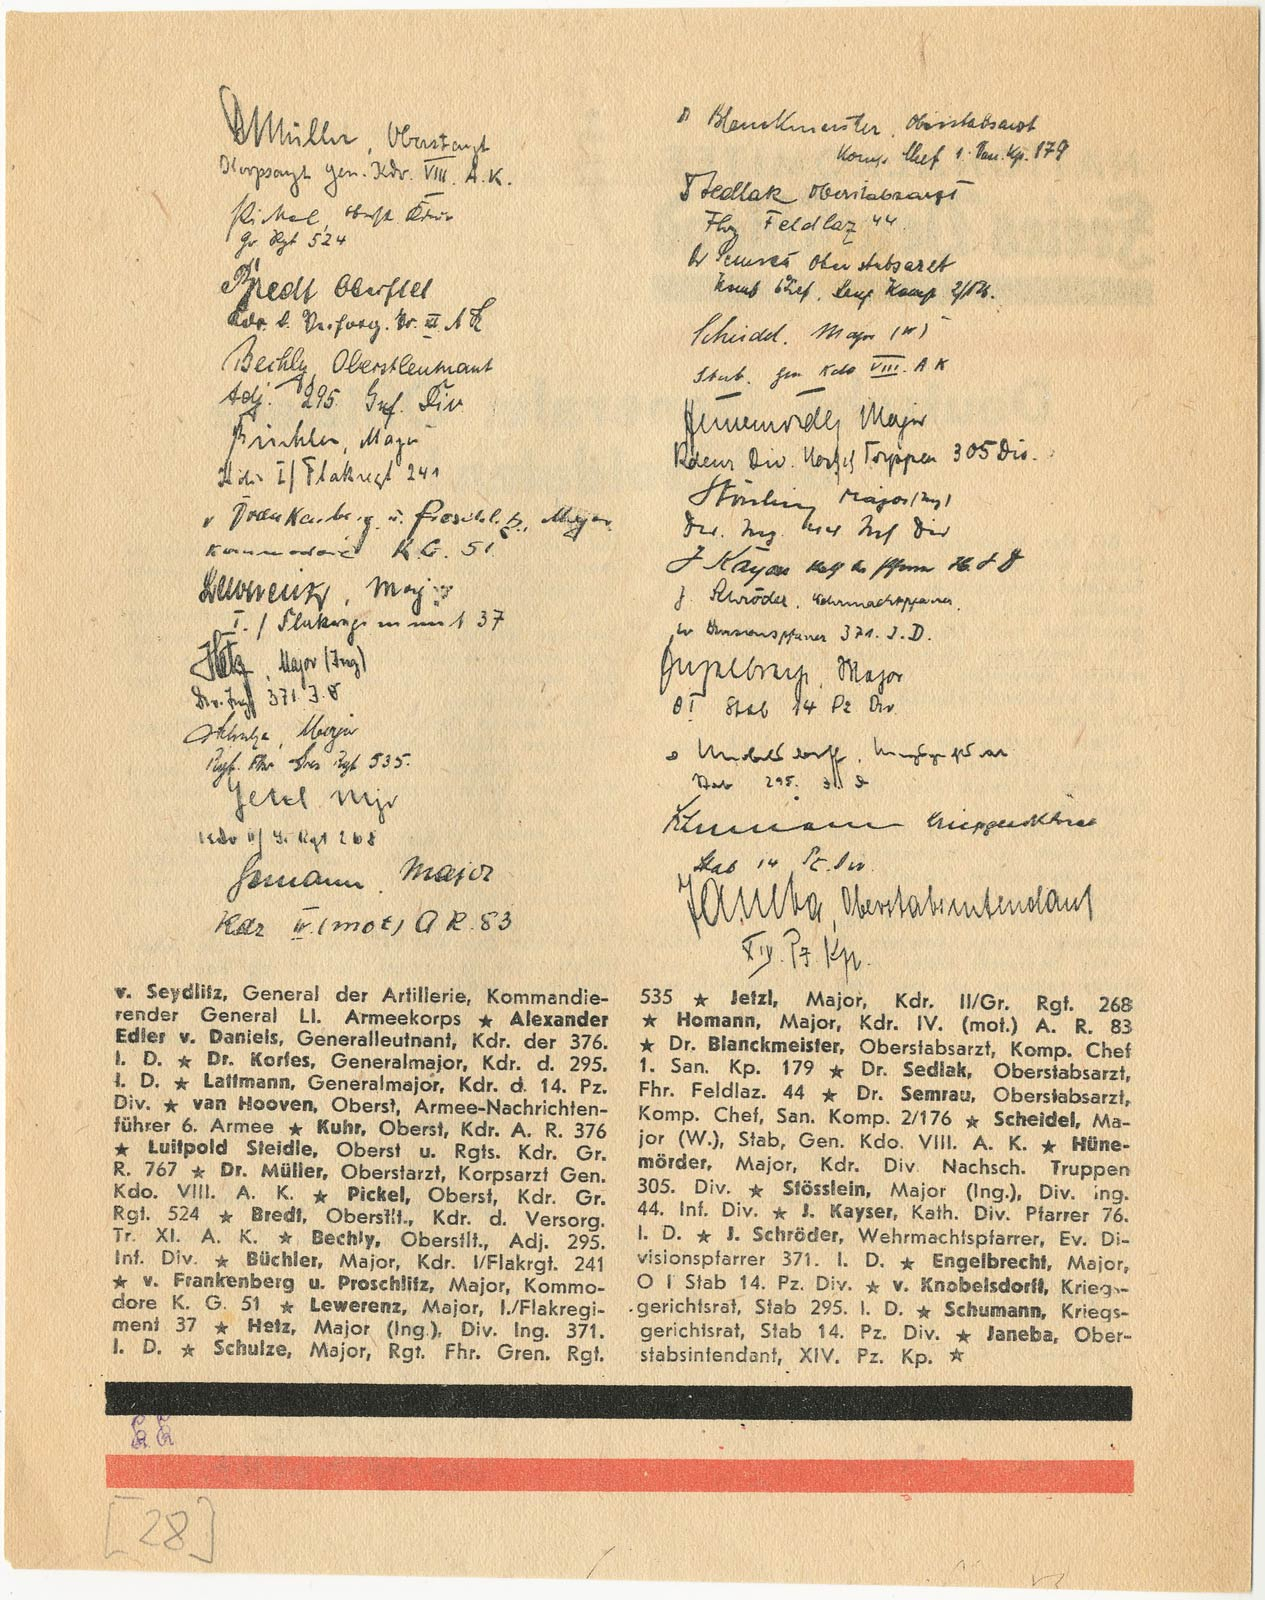 Dr Müller, Oberstarzt
Korpsarzt Gen. Kdo. VIII. A.K.
Pickel, Oberst Kdr
Gr Rgt 524
Bredt Oberstlt
Kdr. d. Versorg. Tr. XI A K
Bechly, Oberstleutnant
Adj. 295. Inf. Div.
Büchler, Major
Kdr I/Flakregt 241
v Frankenberg u. Proschlitz, Major
Kommodore K.G. 51
Lewerenz, Major
I./Flakregiment 37
Hetz, Major (Ing)
Div. Ing. 371 I.D
Schulze, Major
Rgt. Fhr Gren Rgt 535.
Jetzl Major
Kdr II/Gr. Rgt 268
Homann, Major
Kdr IV. (mot) A R. 83
Dr Blanckmeister, Oberstabsarzt
Komp. Chef 1. San. Kp. 179
Dr Sedlak Oberstabsarzt
Fhr Feldlaz 44
Dr Semrau Oberstabsarzt
Komp Chef, San Komp 2/176.
Scheidel. Major (W)
Stab. Gen Kdo VIII. A K
Hünemörder Major
Kdeur Div. Nachsch Truppen 305 Div.
Stösslein Major (Ing)
Div. Ing. Inf Div
J Kayser
J. Schröder, Wehrmachtspfarrer,
ev Divisionspfarrer 371. I.D.
Engelbrecht, Major
O I Stab 14 Pz Div
v Knobelsdorff, Kriegsgerichtsrat
Stab 295. I. D
Schumann Kriegsgerichtsrat
Stab 14 Pz. Div
Janeba, Oberstabsintendant
XIV. Pz. Kp.
v. Seydlitz, General der Artillerie, Kommandie-
render General LI. Armeekorps ★ Alexander
Edler v. Daniels, Generalleutnant, Kdr. der 376.
I. D. ★ Dr. Korfes, Generalmajor, Kdr. d. 295.
I. D. ★ Lattmann, Generalmajor, Kdr. d. 14. Pz.
Div. ★ van Hooven, Oberst, Armee-Nachrichten-
führer 6. Armee ★ Kuhr, Oberst, Kdr. A. R. 376
★ Luitpold Steidle, Oberst u. Rgts. Kdr. Gr.
R. 767 ★ Dr. Müller, Oberstarzt, Korpsarzt Gen.
Kdo. VIII. A. K. ★ Pickel, Oberst, Kdr. Gr.
Rgt. 524 ★ Bredt, Oberstlt., Kdr. d. Versorg.
Tr. XI. A. K. ★ Bechly, Oberstlt., Adj. 295.
Inf. Div. ★ Büchler, Major, Kdr. I/Flakrgt. 241
★ v. Frankenberg u. Proschlitz, Major, Kommo-
dore K. G. 51 ★ Lewerenz, Major, I./Flakregi-
ment 37 ★ Hetz, Major (Ing.), Div. Ing. 371.
I. D. ★ Schulze, Major, Rgt. Fhr. Gren. Rgt.
535 ★ Jetzl, Major, Kdr. II/Gr. Rgt. 268
★ Homann, Major, Kdr. IV. (mot.) A. R. 83
★ Dr. Blanckmeister, Oberstabsarzt, Komp. Chef
1. San. Kp. 179 ★ Dr. Sedlak, Oberstabsarzt,
Fhr. Feldlaz. 44 ★ Dr. Semrau, Oberstabsarzt,
Komp. Chef, San. Komp. 2/176 ★ Scheidel, Ma-
jor (W.), Stab, Gen. Kdo. VIII. A. K. ★ Hüne-
mörder, Major, Kdr. Div. Nachsch. Truppen
305. Div. ★ Stösslein, Major (Ing.), Div. Ing.
44. Inf. Div. ★ J. Kayser, Kath. Div. Pfarrer 76.
I. D. ★ J. Schröder, Wehrmachtspfarrer, Ev. Di-
visionspfarrer 371. I. D. ★ Engelbrecht, Major,
O I Stab 14. Pz. Div. ★ v. Knobelsdorff, Kriegs-
gerichtsrat, Stab 295. I. D. ★ Schumann, Kriegs-
gerichtsrat, Stab 14. Pz. Div. ★ Janeba, Ober-
stabsintendant, XIV. Pz. Kp. ★
[28]